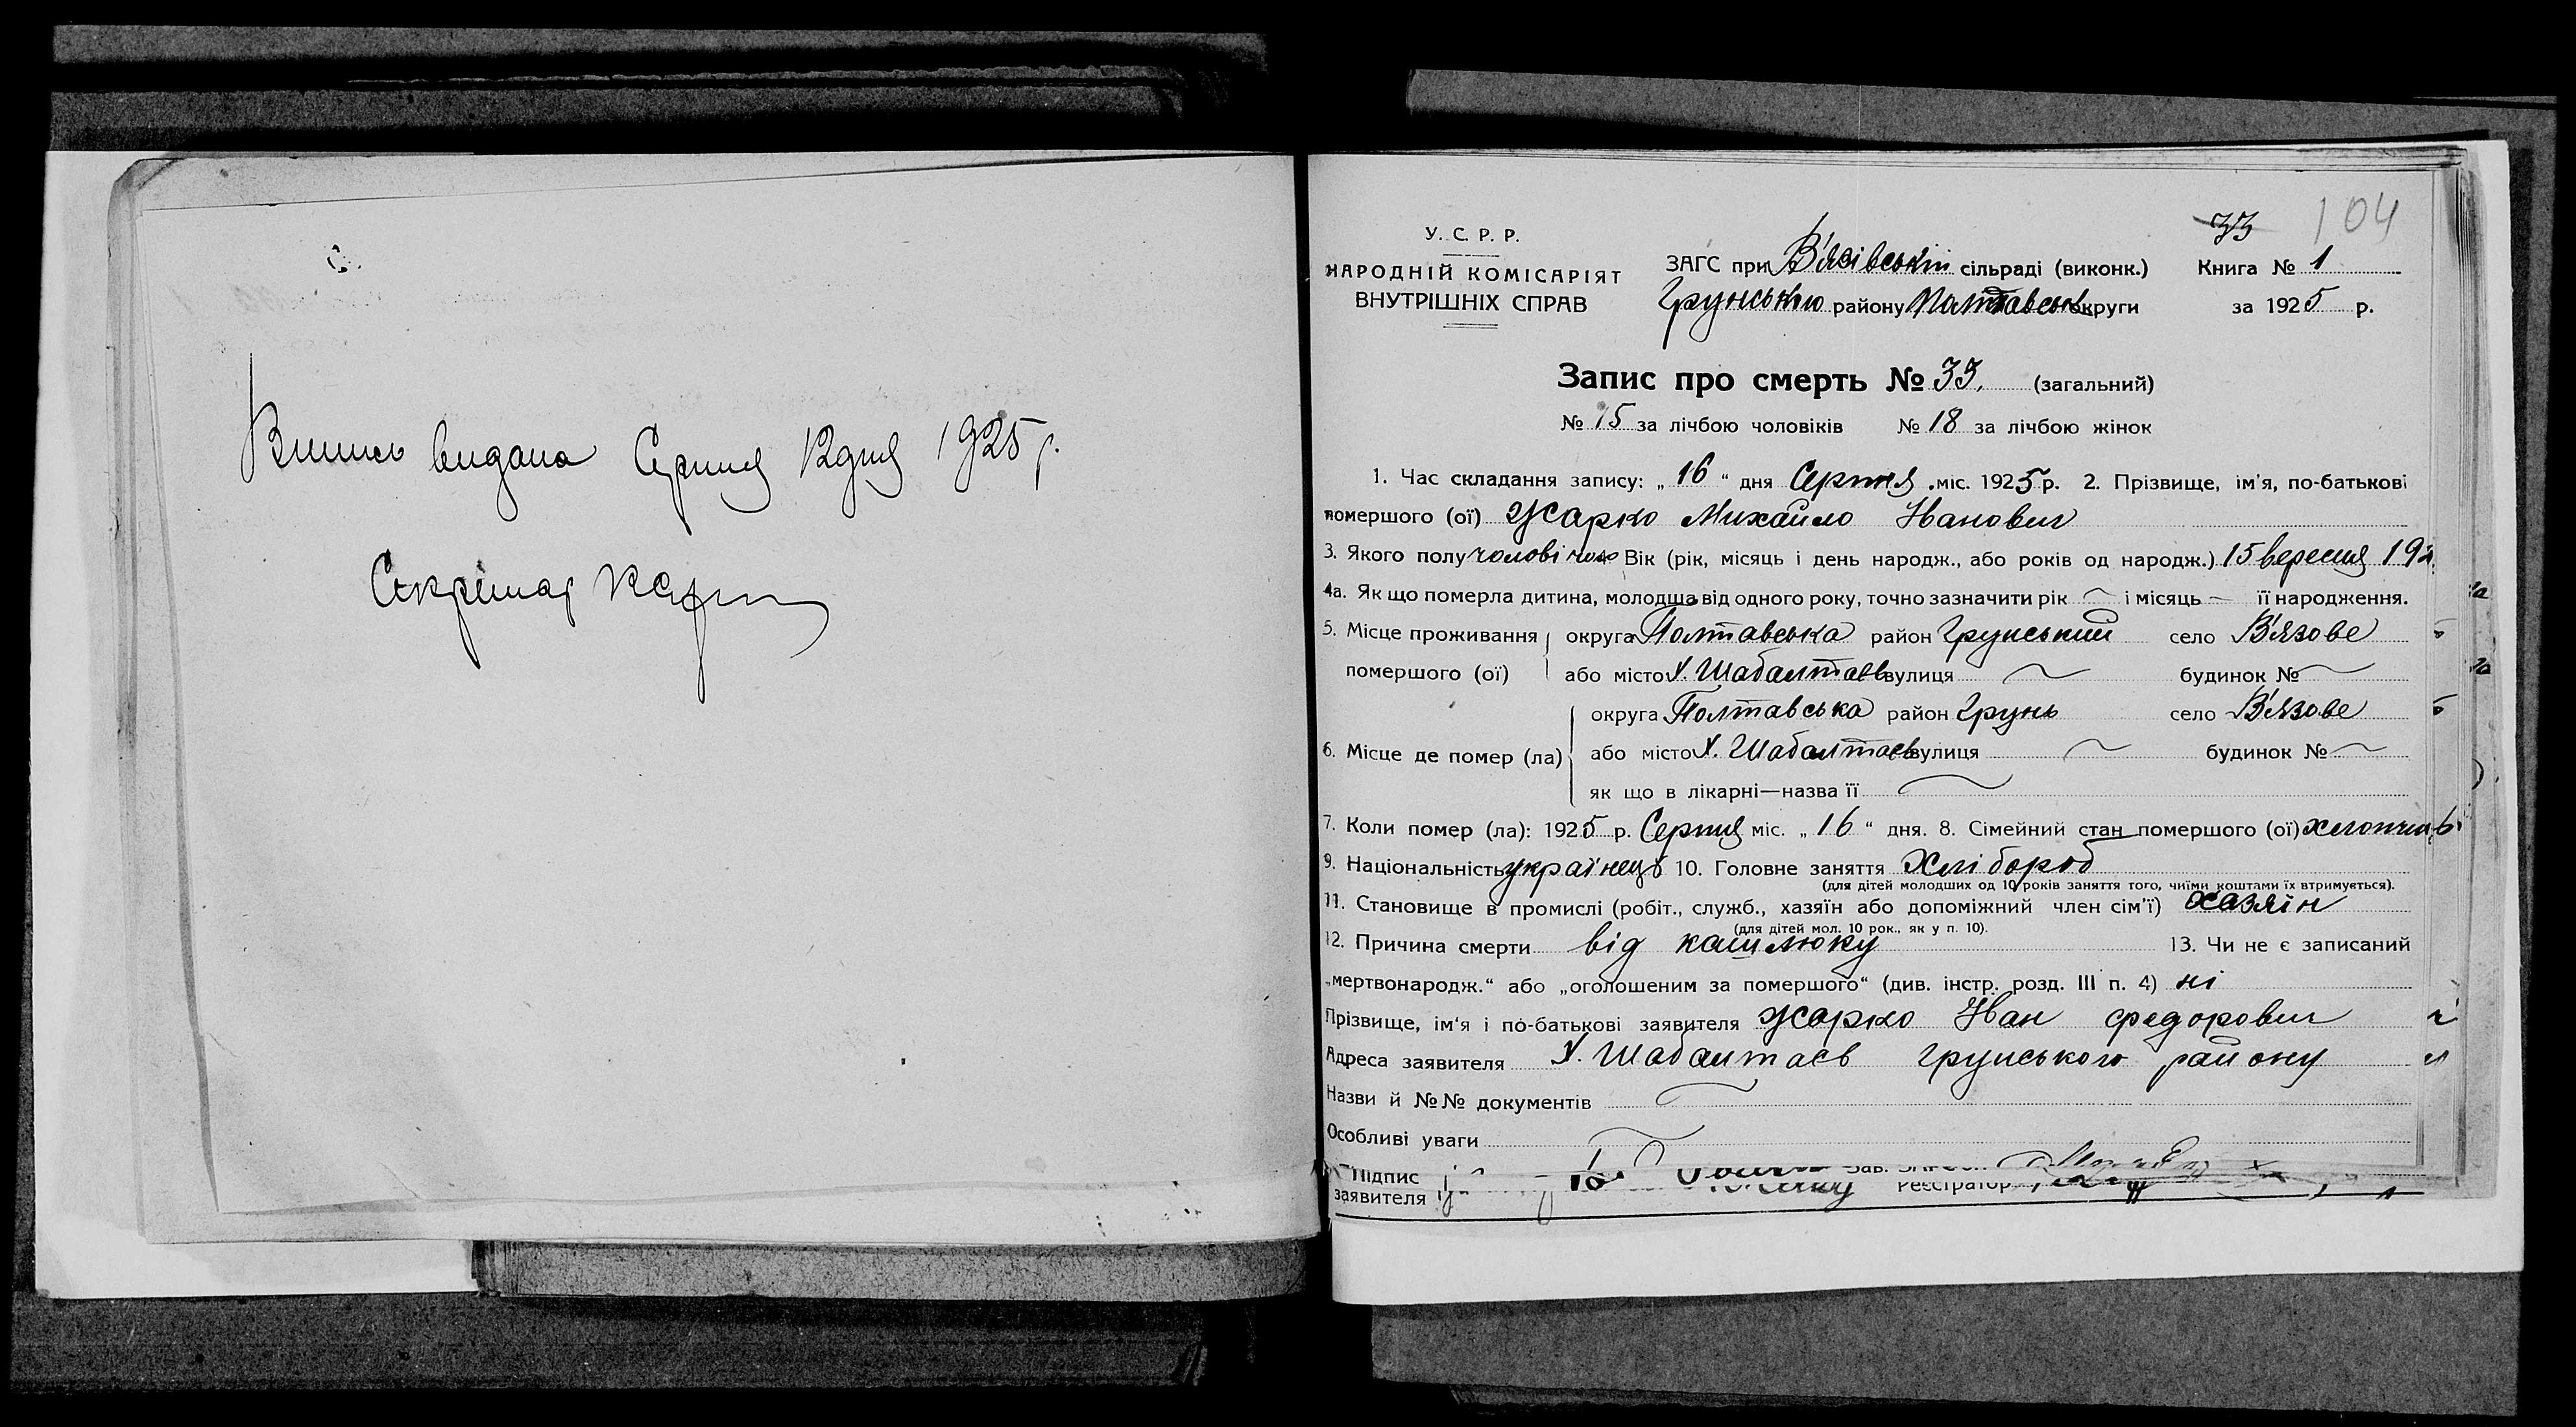 Випись видана Серпня 12 дня 1925 р.
Секретар
33 104
У. С. Р. Р.
НАРОДНІЙ КОМІСАРІЯТ
ВНУТРІШНІХ СПРАВ
ЗАГС при В'язівській сільраді (виконк.) Книга № 1
Грунського району Полтавськ округи за 1925 р.
Запис про смерть № 33. (загальний)
№ 15 за лічбою чоловіків № 18 за лічбою жінок
1. Час складання запису: „ 16 “ дня Серпня міс. 1925 р. 2. Прізвище, ім'я, по-батькові
помершого (ої) Жарко Михайло Іванович
3. Якого полу чоловічого 4. Вік (рік, місяць і день народж., або років од народж.) 15 вересня 192
4а. Як що померла дитина, молодша від одного року, точно зазначити рік ~ і місяць — її народження.
5. Місце проживання округа Полтавська район Грунський село В'язове
помершого (ої) або місто х. Шабалтаєв вулиця ~ будинок № ~
округа Полтавська район Грунь село В'язове
6. Місце де помер (ла) або місто х. Шабалтаєв вулиця ~ будинок № ~
як що в лікарні—назва її ~
7. Коли помер (ла): 1925 р. Серпня міс. „ 16 “ дня. 8. Сімейний стан помершого (ої)
9. Національність українець 10. Головне заняття Хлібороб
(для дітей молодших од 10 років заняття того, чиїми коштами їх втримується).
11. Становище в промислі (робіт., служб., хазяїн або допоміжний член сім'ї) хазяїн
(для дітей мол. 10 рок., як у п. 10).
12. Причина смерти від кашлюку 13. Чи не є записаний
„мертвонародж.“ або „оголошеним за помершого“ (див. інстр. розд. III п. 4) ні
Прізвище, ім'я і по-батькові заявителя Жарко Іван Федорович
Адреса заявителя х. Шабалтаєв Грунського району
Назви й №№ документів ~
Особливі уваги ~
Підпис Зав. ЗАГСом
заявителя Реєстратор